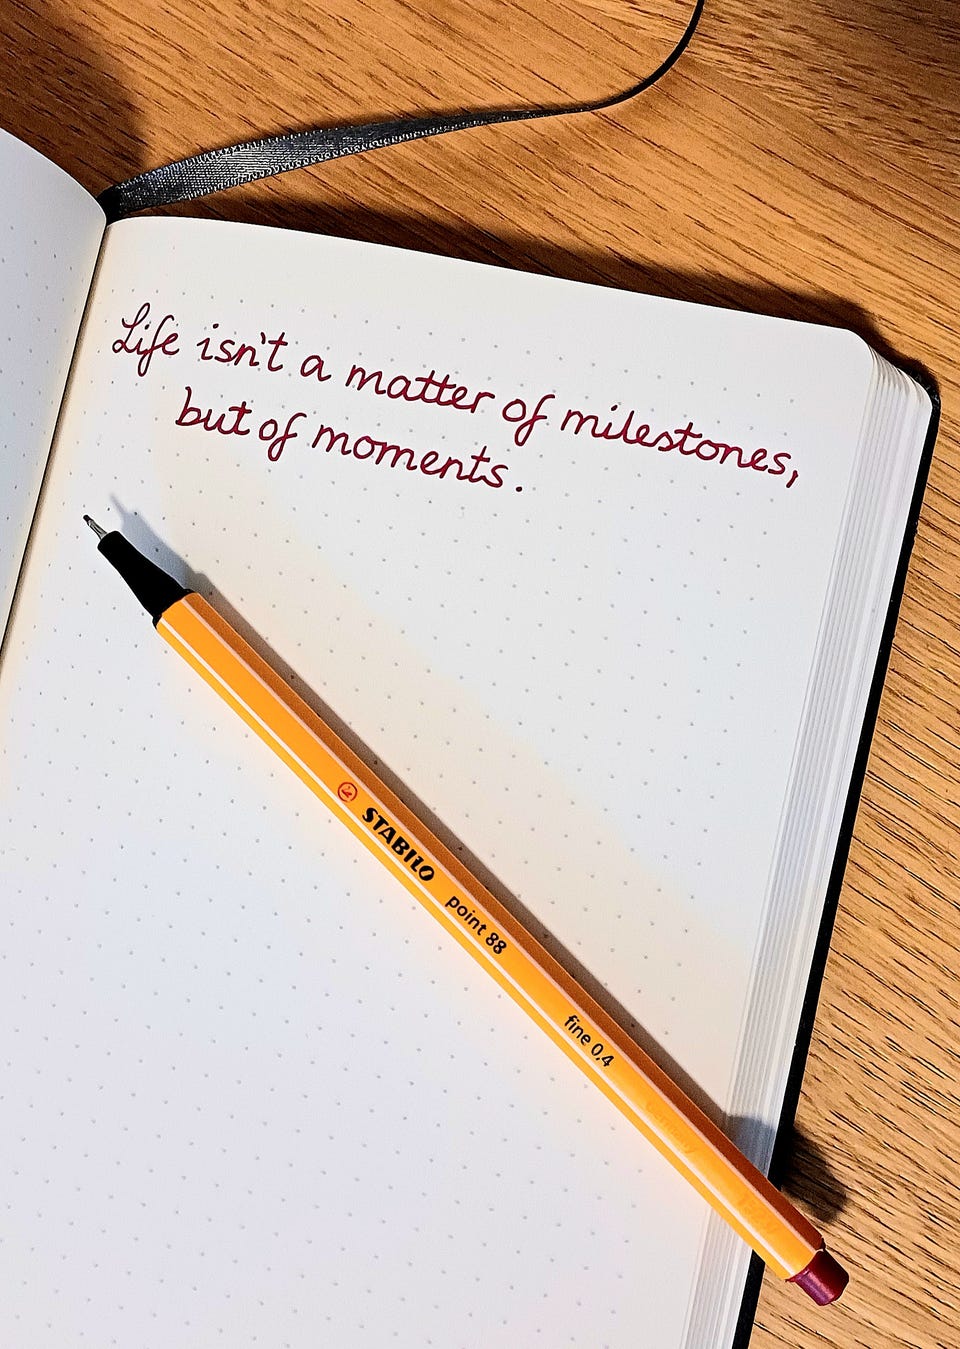 Life isn't a matter of milestones,
but of moments.
STABILO point 88 fine 0,4